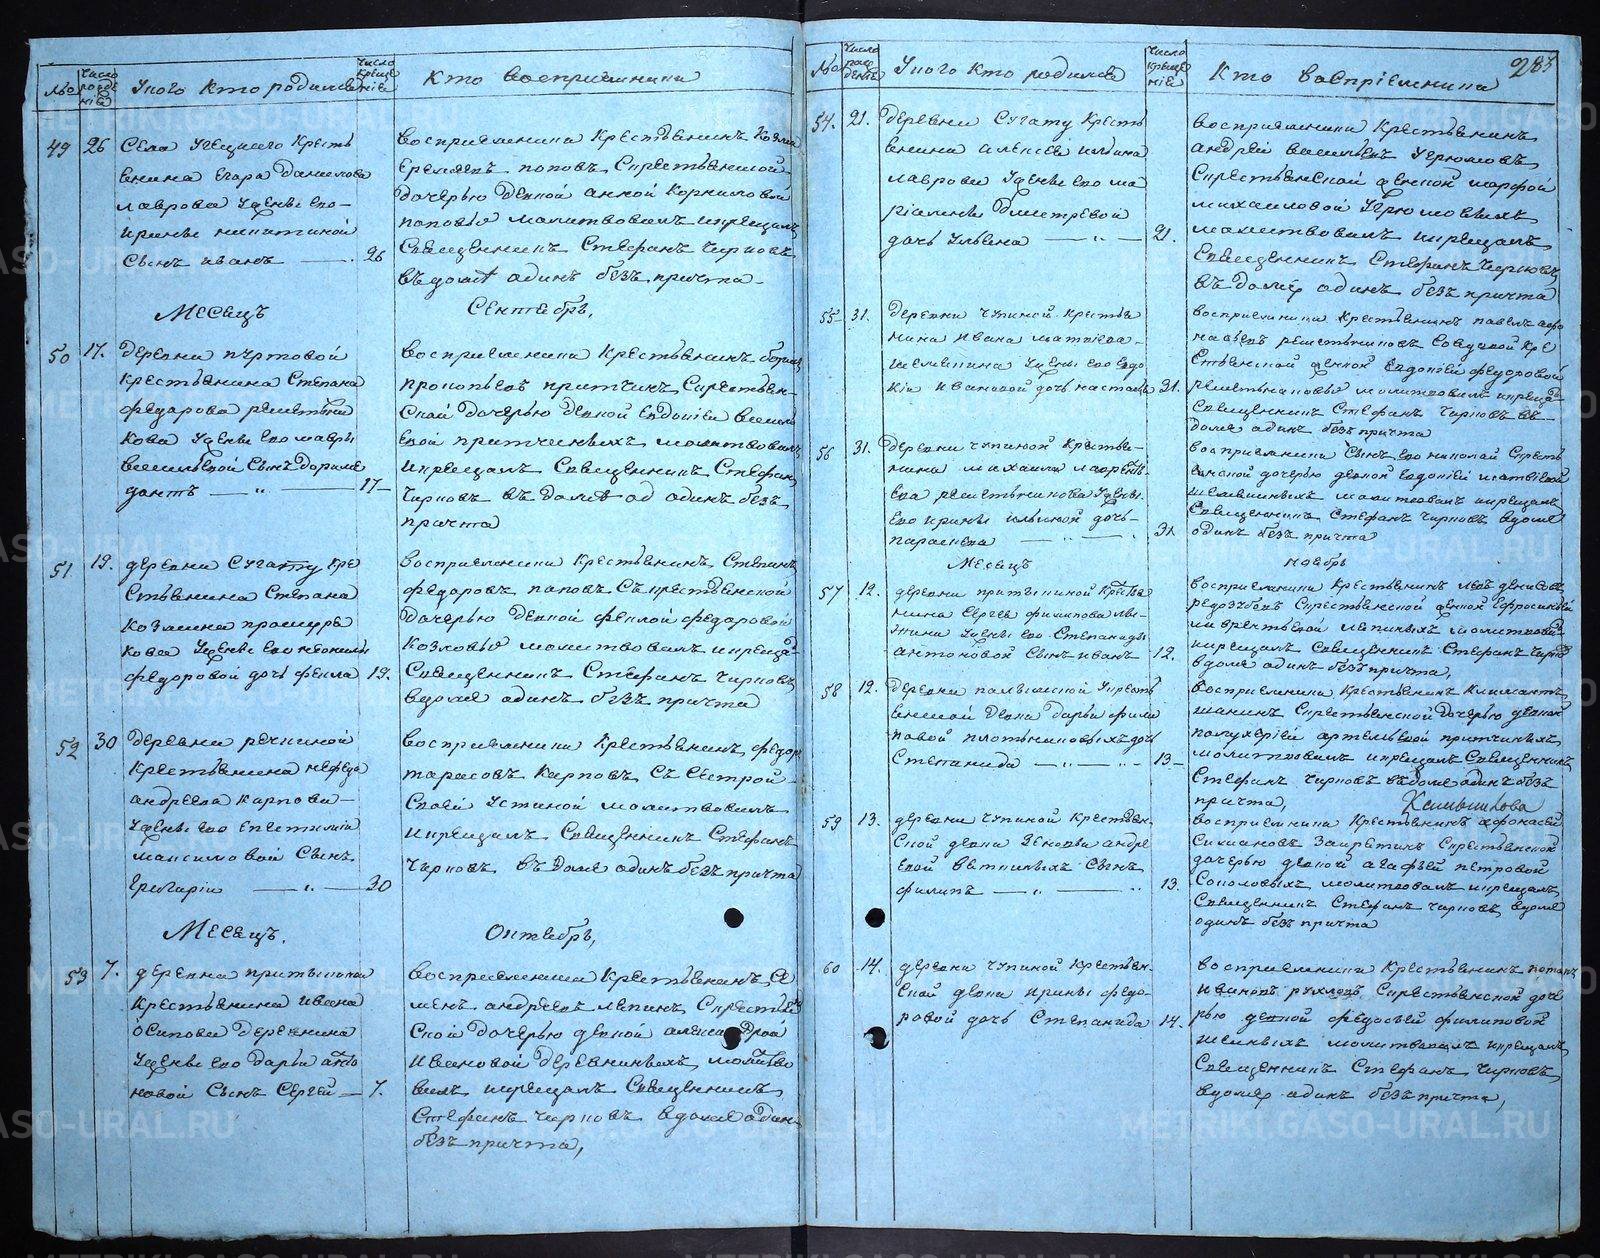 №
Число рожде нія
У кого кто родился
Число креще нія
Кто восприемники
49 26 Села крестья
енина Егора Данилова
Лаврова у жены его
Ирины Никитиной
сынъ Иванъ 26
восприемники крестьянинъ Козма
Еремеевъ Поповъ с крестьянской
дочерью девкой Анной Корниловой
Поповыхъ молитвовалъ и крещалъ
Священникъ Стефанъ Чирковъ
въ доме одинъ безъ причта
Месецъ Сентебрь,
50 17. деревни
крестьянина Степана
Федорова Решетни
кова у жены его Мавры
Васильевой сынъ Дориме
донтъ 17
восприемники крестьянинъ
Прокопьевъ Притчинъ с крестьян
ской дочерью девкой Евдокіей Василь
евой молитвовалъ
и крещалъ Священникъ Стефанъ
Чирковъ въ доме одинъ безъ
причта
51. 19. деревни Сугату кре
стьянина Степана
Козмина
кова у жены его
Федоровой дочь Фекла 19.
восприемники крестьянинъ Степанъ
Федоровъ Поповъ съ крестьянской
дочерью девкой Феклой Федоровой
Козловыхъ молитвовалъ и креща
Священникъ Стефанъ Чирковъ
в доме одинъ безъ причта
52 30 деревни Речкиной
крестьянина Нефеда
Андреева Карпова
у жены его
Максимовой сынъ
Григорій 30
восприемники крестьянинъ Федор
Тарасовъ Карповъ съ сестрой
своей Устиной молитвовалъ
и крещалъ Священникъ Стефанъ
Чирковъ въ доме одинъ безъ причта
Месецъ. Октебрь,
53 7. деревни Притыкиной
крестьянина Ивана
Осипова Деревнина
у жены его Дарьи Анто
новой сынъ Сергей 7.
восприемники крестьянинъ Се
менъ Андреевъ Лепинъ с крестьян
ской дочерью девкой
Ивановой Деревниныхъ молитво
валъ и крещалъ Священникъ
Стефанъ Чирковъ в доме одинъ
безъ причта,
283
№
Число рож деніе
У кого кто родился
Число креще нія
Кто воспріемники
54. 21. деревни Сугату кресть
енина Алексея Ильина
Лаврова у жены его Ма
ріамны Дмитревой
дочь Ульяна 21.
восприемники крестьянинъ
Андрей Васильевъ Угрюмовъ
с крестьянской женкой Марфой
Михаиловой Угрюмовыхъ
молитвовалъ и крещалъ
Священникъ Стефанъ Чирковъ
въ доме одинъ безъ причта
55 31. деревни Чупиной крестья
нина Ивана Матвіева
Шелвинина у жены его Евдо
кіи Ивановой дочь Настасья 31.
восприемники крестьянинъ Павелъ Афо
насьевъ Решетниковъ с кре
стьянской женкой Евдокіей Федоровой
Решетниковыхъ молитвовалъ и креща
Священникъ Стефанъ Чирковъ въ
доме одинъ безъ причта
56 31. деревни Чупиной крестья
нина Михаила Лаврентье
ева Решетникова у жены
его Ирины Ильиной дочь
Парасковья 31.
восприемники сынъ его Николай с кресть
енской дочерью девкой Евдокіей Матвіевой
молитвовалъ и крещалъ
Священникъ Стефанъ Чирковъ в доме
одинъ безъ причта
Месецъ Ноябрь
57 12. деревни Притыкиной крестья
нина Сергея Филипова Ле
пнина у жены его Степаниды
Антоновой сынъ Иванъ 12.
восприемники крестьянинъ
с крестьянской женкой Ефросиньей
Лаврентьевой Лепиныхъ молитвова
и крещалъ Священникъ Стефанъ Чирковъ
в доме одинъ безъ причта,
58 12. деревни у кресть
янской девки Дарьи Фили
повой Плотниковыхъ дочь
Степанида 13
восприемники крестьянинъ
с крестьянской дочерью девкой
молитвовалъ и крещалъ Священникъ
Стефанъ Чирковъ въ доме одинъ безъ
причта,
59 13. деревни Чупиной крестьян
ской девки Феклы Андре
евой сынъ
Филипъ 13.
восприемники крестьянинъ Афонасей
Симановъ с крестьянской
дочерью девкой Агафьей Петровой
Соколовыхъ молитвовалъ и крещалъ
Священникъ Стефанъ Чирковъ в доме
одинъ безъ причта
60 14. деревни Чупиной крестьян
ской девки Ирины Федо
ровой дочь Степанида 14.
восприемники крестьянинъ Потапъ
Ивановъ с крестьянской доче
рью девкой Федосьей Филиповой
молитвовалъ и крещалъ
Священникъ Стефанъ Чирковъ
в доме одинъ безъ причта,
METRIKI.GASO-URAL.RU